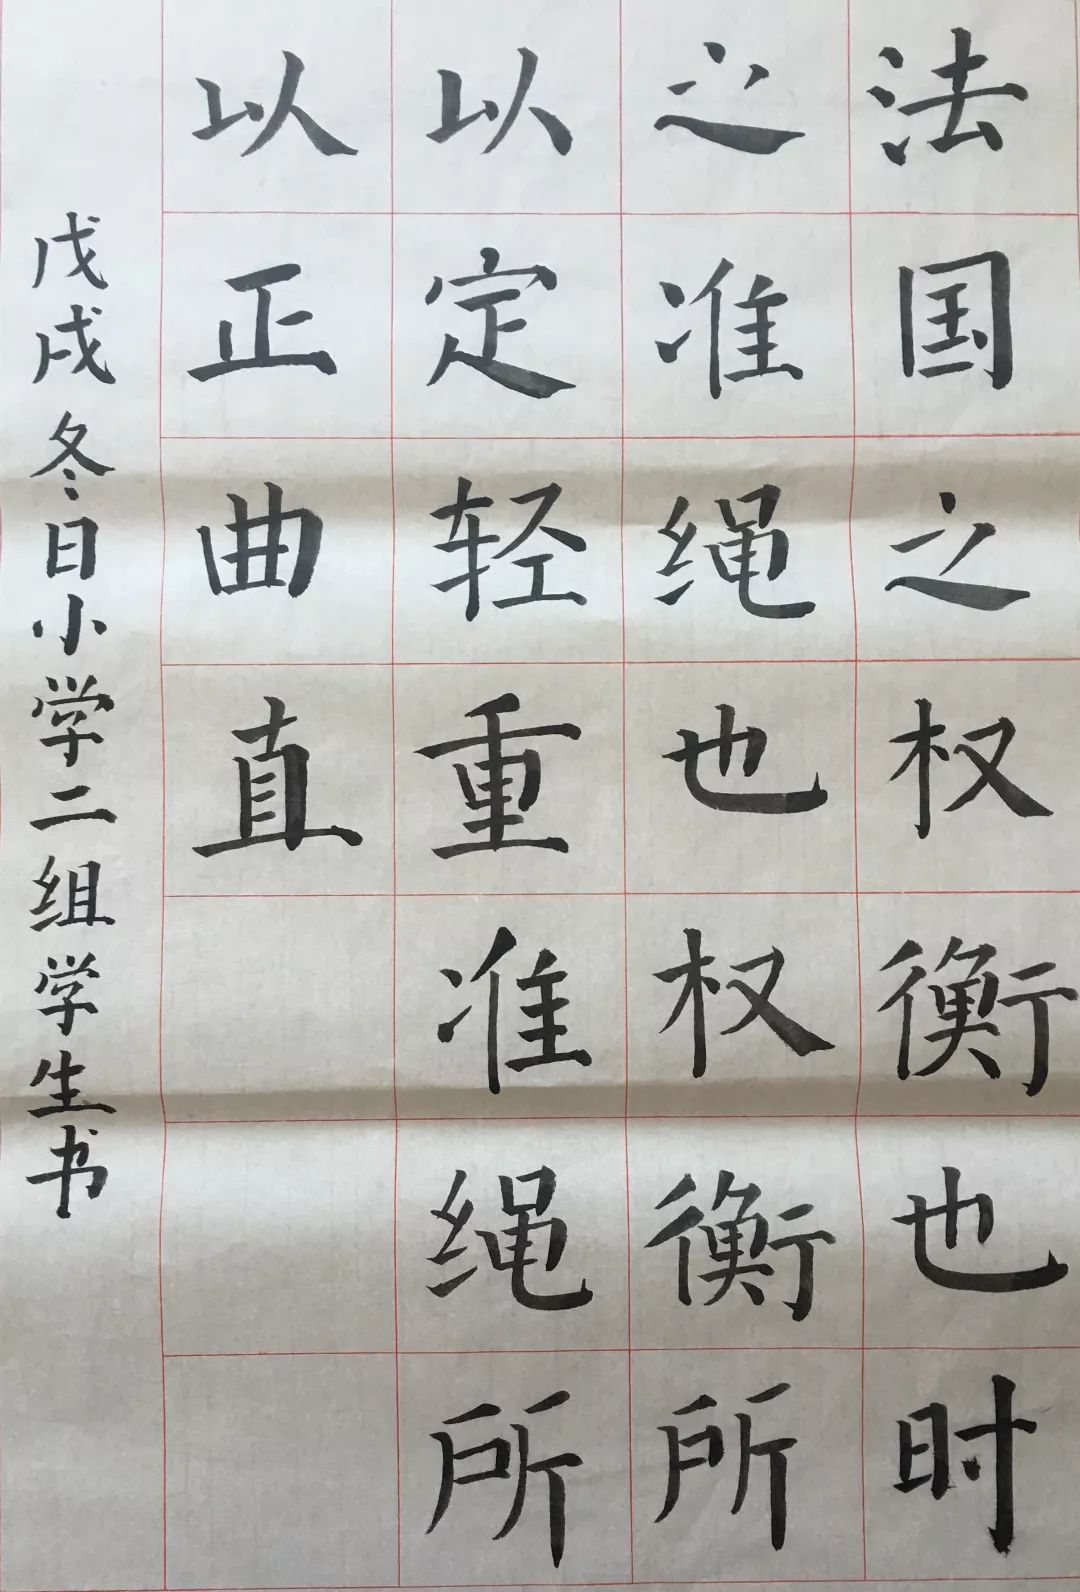 法国之权衡也时
之准绳也权衡所
以定轻重准绳所
以正曲直
戊戌冬日小学二组学生书